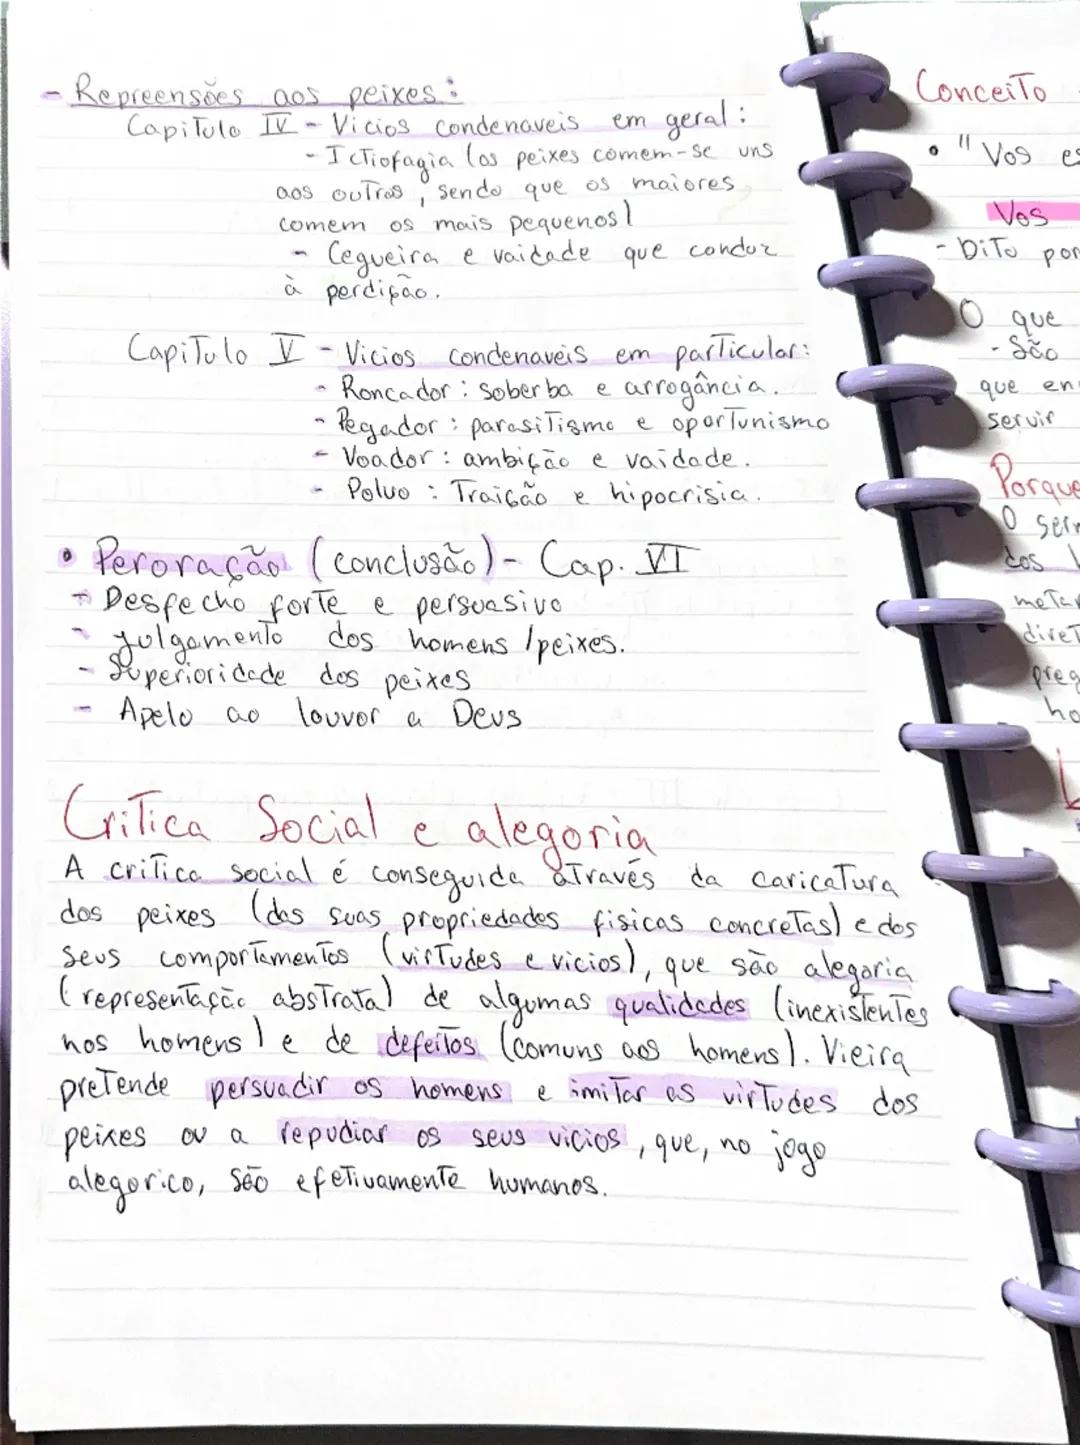 - Repreensões aos peixes:
Capitulo IV - Vicios condenaveis em geral:
- Ictiofagia (os peixes comem-se uns
aos outros, sendo que os maiores
comem os mais pequenos)
- Cegueira e vaidade que conduz
à perdição.
Capitulo V - Vicios condenaveis em particular:
- Roncador: soberba e arrogância.
- Pegador: parasitismo e oportunismo
- Voador: ambição e vaidade.
- Polvo: Traição e hipocrisia.
• Peroração (conclusão) - Cap. VI
- Desfecho forte e persuasivo
- julgamento dos homens/peixes.
- Superioridade dos peixes
- Apelo ao louvor a Deus
Critica Social e alegoria
A critica social é conseguida através da caricatura
dos peixes (das suas propriedades fisicas concretas) e dos
seus comportamentos (virtudes e vicios), que são alegoria
(representação abstrata) de algumas qualidades (inexistentes
nos homens) e de defeitos (comuns aos homens). Vieira
pretende persuadir os homens e imitar as virtudes dos
peixes ou a repudiar os seus vicios, que, no jogo
alegorico, são efetivamente humanos.
Conceito
• "Vos es
Vos
- Dito por
O que
- São
que en
servir
Porque
O ser
dos
diret
preg
ho